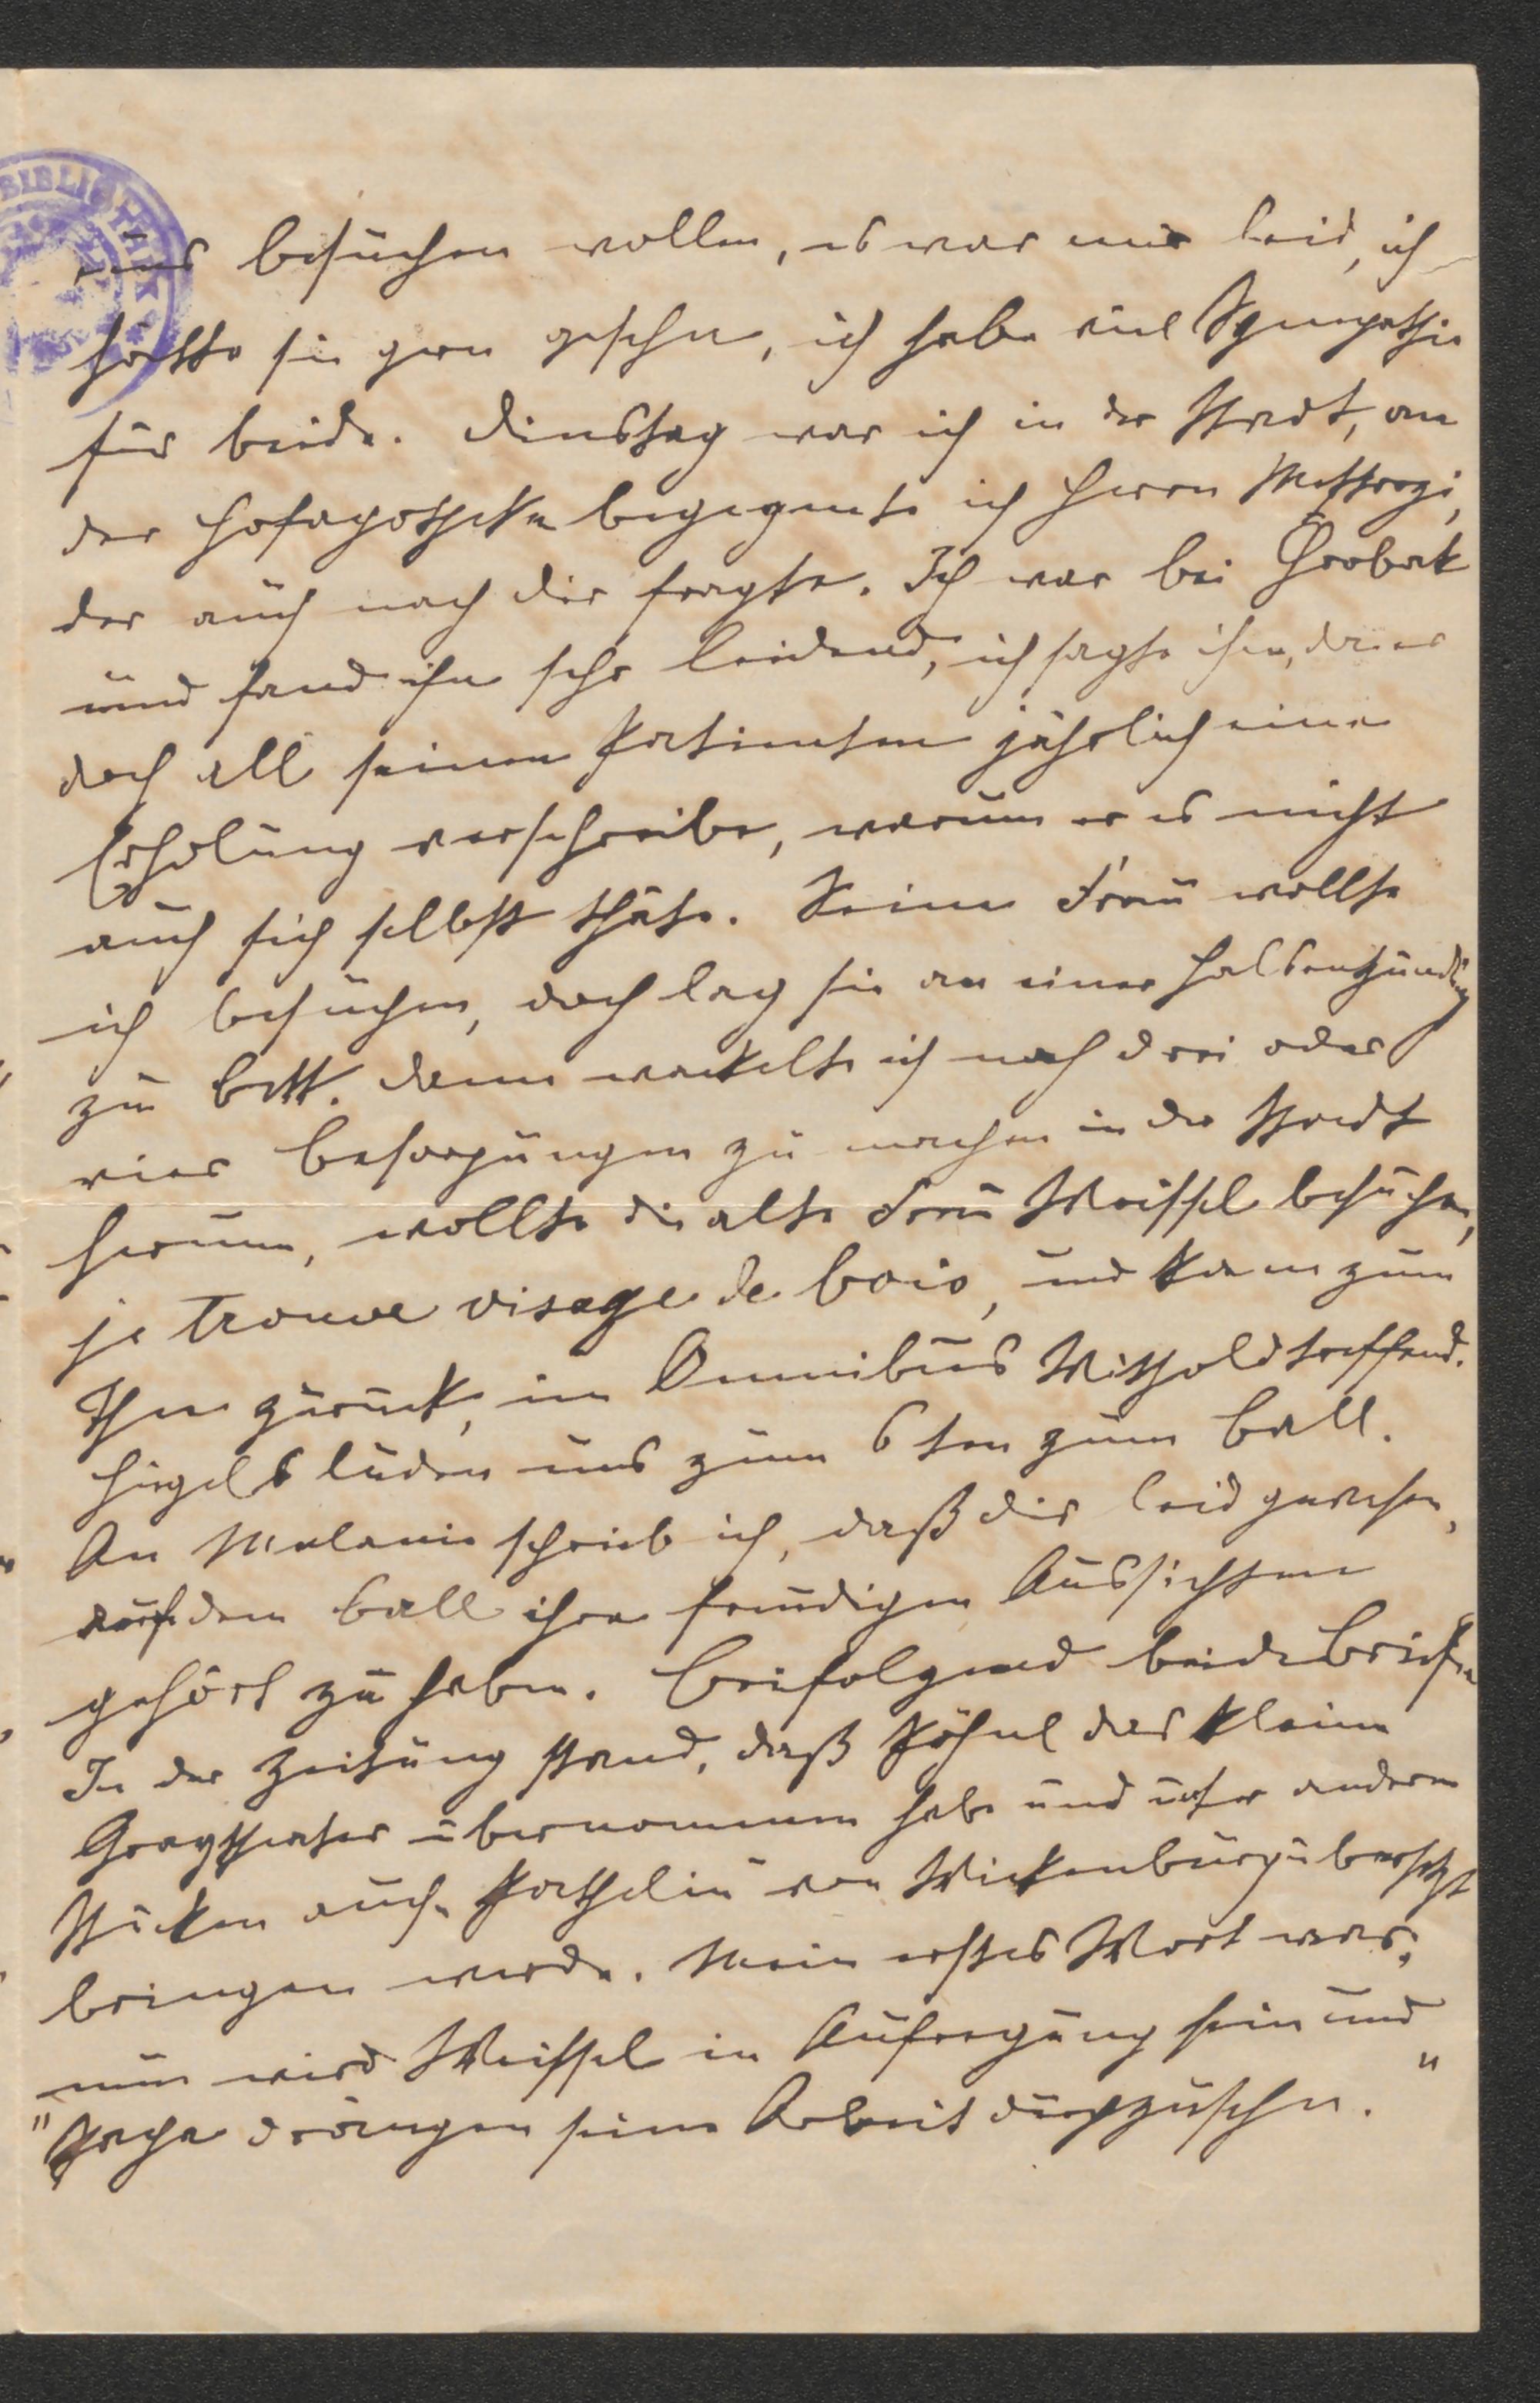 BIBLIOTHEK
uns besuchen wollen, es war mir leid, ich
hätte sie gern gesehn, ich habe viel Sympathie
für beide. Dienstag war ich in der Stadt, an
der Hofapotheke begegnete ich Herrn
der auch nach dir fragte. Ich war bei Chrobak
und fand ihn sehr leidend, ich sagte ihm, da er
doch all seinen Patienten jährlich eine
Erholung verschreibe, warum er es nicht
auch sich selbst thäte. Seine Frau wollte
ich besuchen, doch lag sie an einer Halsentzündung
zu Bett. Dann wackelte ich noch drei oder
vier Besorgungen zu machen in der Stadt
herum, wollte die alte Frau Weissel besuchen,
je trouve visage de bois, und kam zum
Thee zurück, im Omnibus Withold treffend.
luden uns zum 6ten zum Ball.
An Melanie schrieb ich, daß dir leid gewesen,
auf dem Ball ihre freudigen Aussichten
gehört zu haben. Beifolgend beide Briefe
In der Zeitung stand, daß das kleine
übernommen habe und unter anderen
Stücken auch Pathelin von Wickenburg übersetzt
bringen werde. Mein erstes Wort war,
nun wird Weissel in Aufregung sein und
" drängen seine Arbeit durchzusehn. "